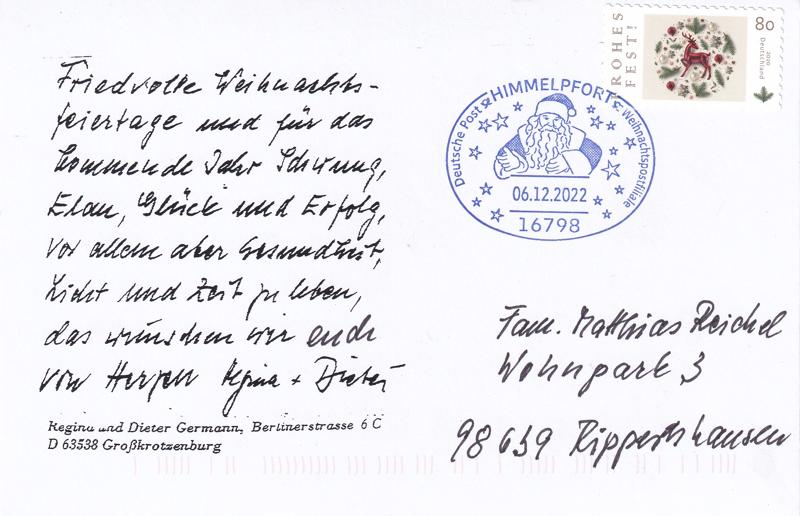 Friedvolle Weihnachts-
feiertage und für das
kommende Jahr Schwung,
Elan, Glück und Erfolg,
vor allem aber Gesundheit,
Licht und Zeit zu leben,
das wünschen wir euch
von Herzen Regina + Dieter
Regina und Dieter Germann, Berlinerstrasse 6 C
D 63538 Großkrotzenburg
FROHES
FEST!
80
2020
Deutschland
Deutsche Post HIMMELPFORT Weihnachtspostfiliale
06.12.2022
16798
Fam. Matthias Reichel
Wohnpark 3
98639 Rippershausen